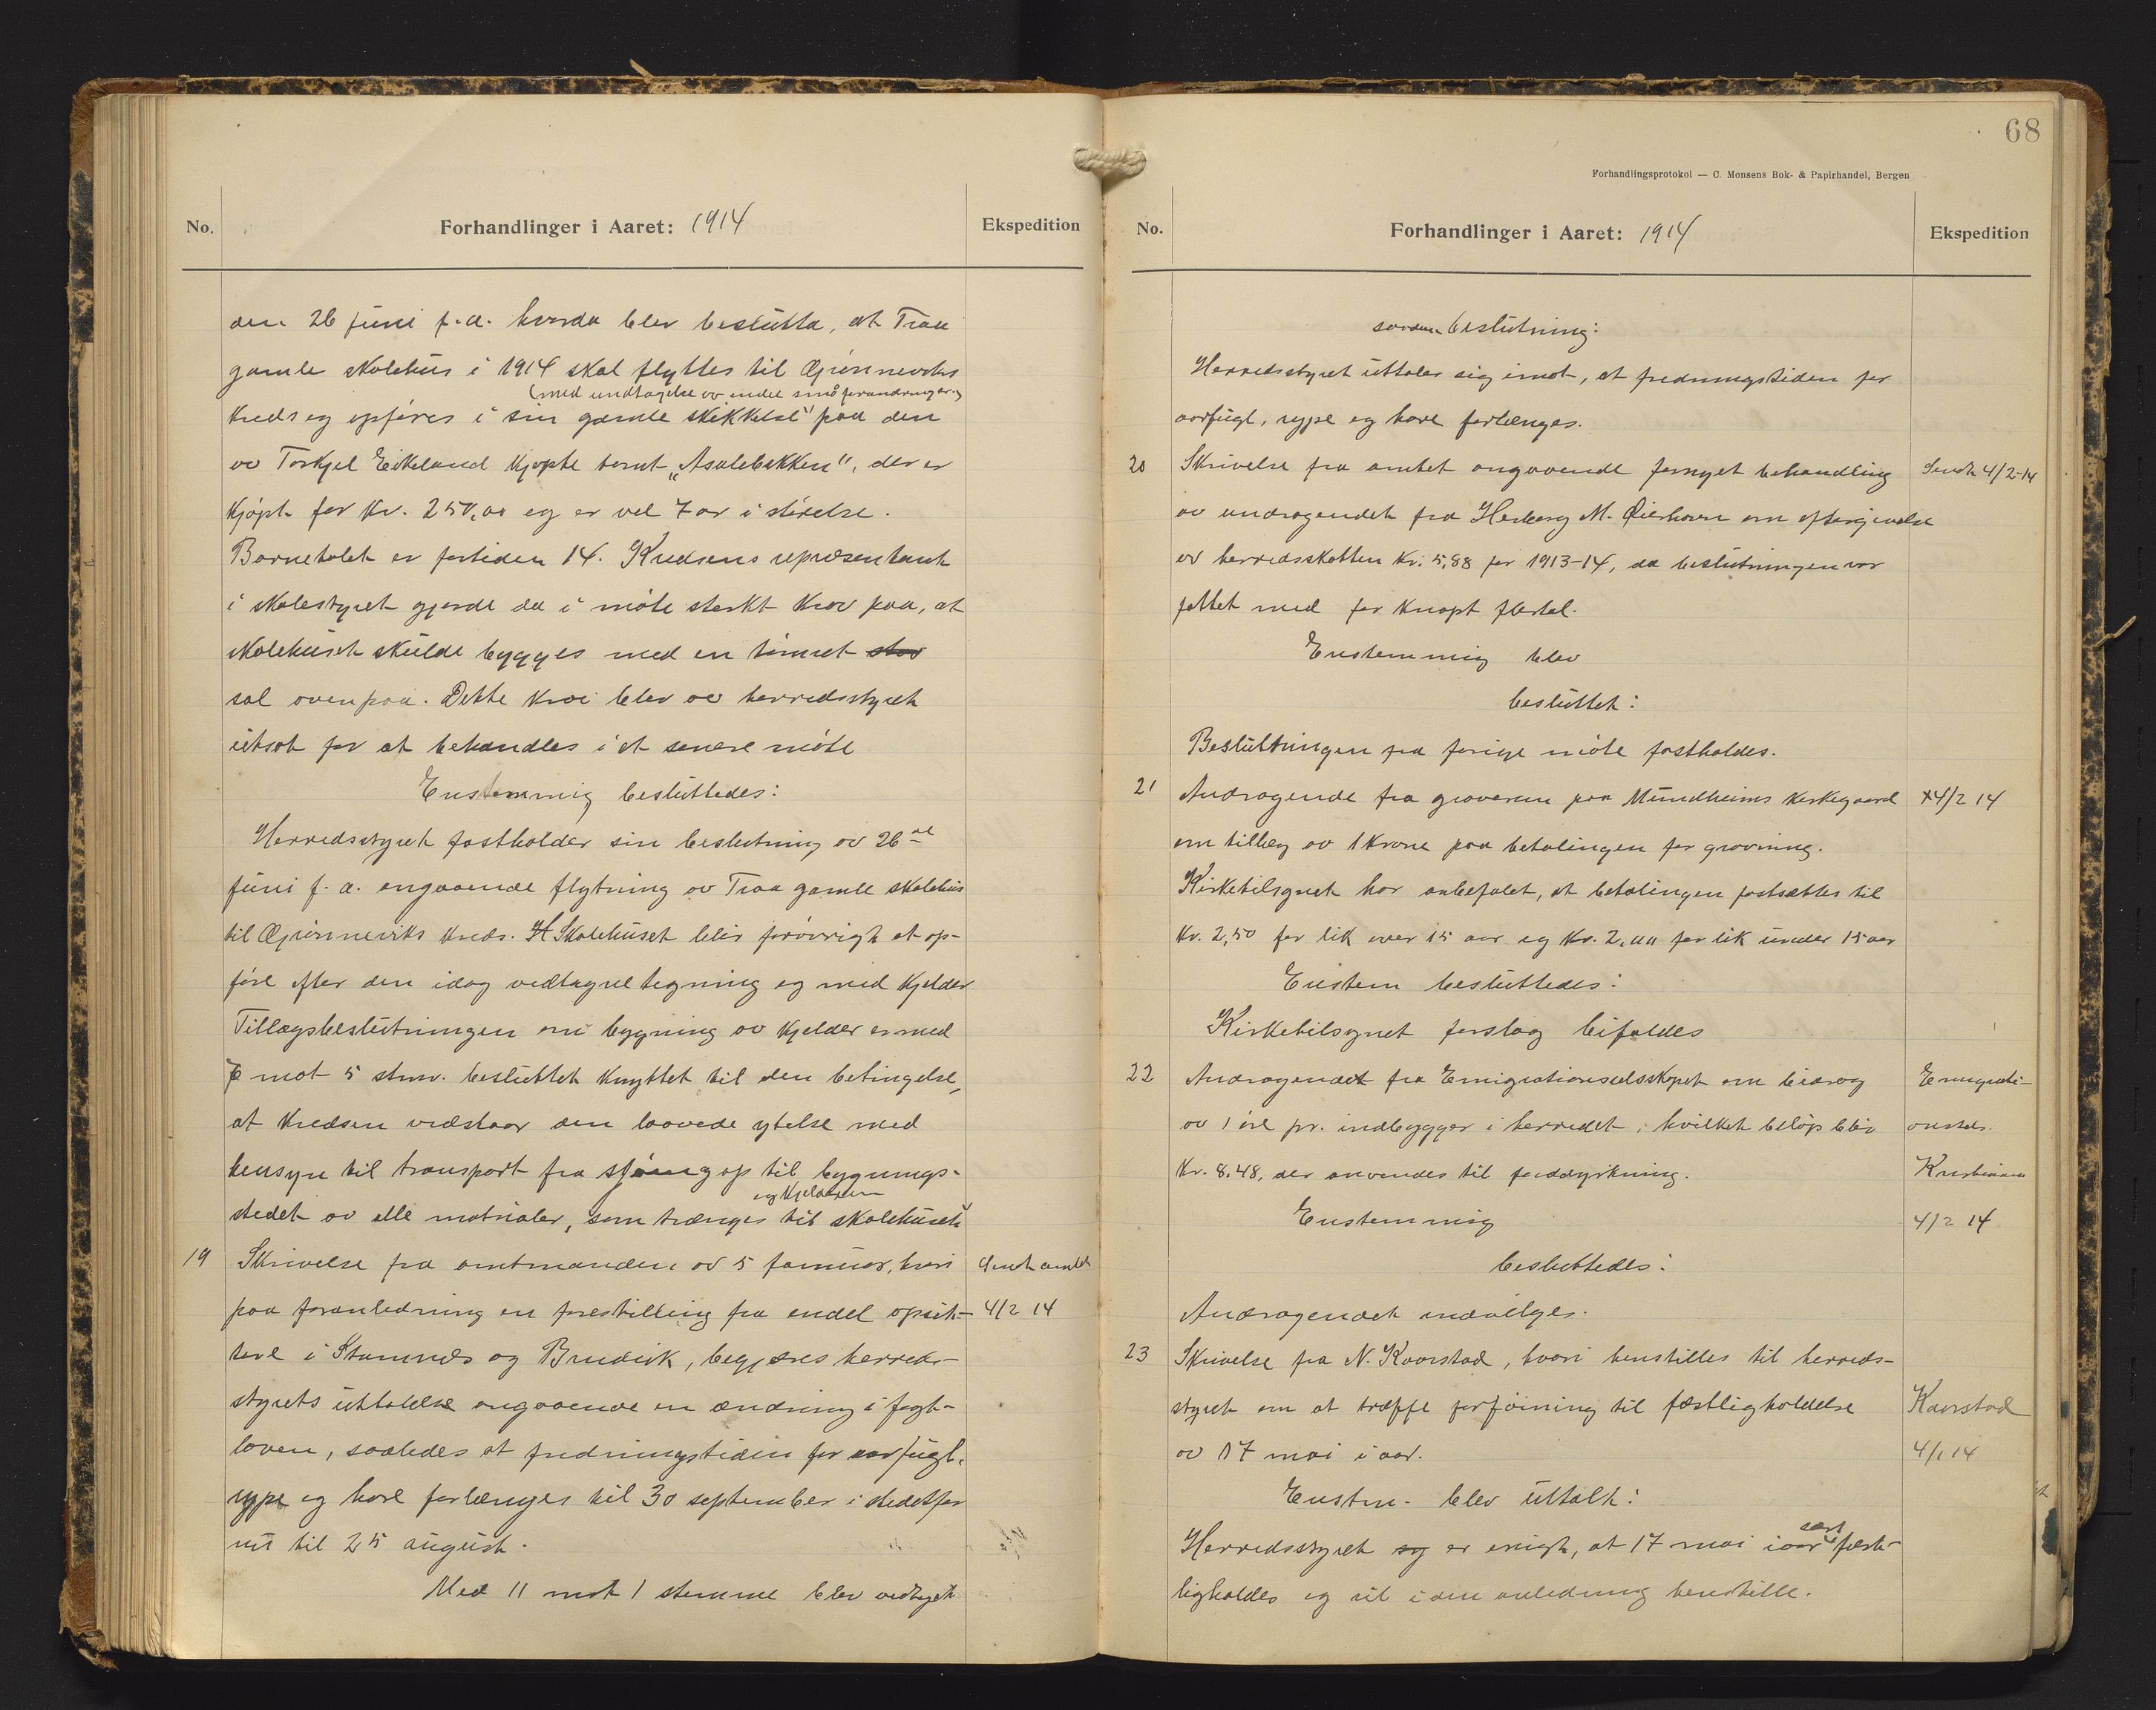 No.
Forhandlinger i Aaret: 1914
Ekspedition
den 26 juni f.a. hvorda blev beslutta, at Traa
gamle skolehus i 1914 skal flyttes til Gjønneviks
(med undtagelse av endel små forandringer)
kreds og opføres i sin gamle skikkelse paa den
av Torkjel Eikeland kjøpte tomt „Asalebakken", der er
kjøpt for kr. 250,00 og er vel 7 ar i størelse.
Barnetalet er fortiden 14. Kredsens repræsentant
i skolestyret gjorde da i møte sterkt krav paa, at
skolehuset skulde bygges med en tømret
sal ovenpaa. Dette krav blev av herredsstyret
utsat for at behandles i et senere møte
Enstemmig besluttedes:
Herredsstyret fastholder sin beslutning av 26de
juni f.a. angaaende flytning av Traa gamle skolehus
til Gjønneviks kreds. Skolehuset blir forøvrigt at op-
føre efter den idag vedtagne tegning og med kjelder
Tillægsbeslutningen om bygning av kjelder er med
mot 5 stm. besluttet knyttet til den betingelse,
at kredsen vedstaar den lovede ytelse med
hensyn til transport fra sjøen og op til bygnings-
og kjelderen
stedet av alle matrialer, som trænges til skolehuset
19 Skrivelse fra amtmanden av 5 januar, hvori
Sendt amtet
paa foranledning en forestilling fra endel opsit-
4/2 14
tere i Stamnes og Brudvik, begjæres herreds-
styrets uttalelse angaaende en ændring i jagt-
loven, saaledes at fredningstiden for aarfugl,
rype og hare forlænges til 30 september i stedetfor
nu til 25 august.
Med 11 mot 1 stemme blev vedtaget
68
Forhandlingsprotokol — C. Monsens Bok- & Papirhandel, Bergen
No.
Forhandlinger i Aaret: 1914
Ekspedition
saadan beslutning:
Herredsstyret uttaler sig imot, at fredningstiden for
aarfugl, rype og hare forlænges.
20 Skrivelse fra amtet angaaende fornyet behandling
Sendt 4/2-14
av andragendet fra Herborg M. Øierhavn om eftergivelse
av herredsskatten kr. 5,88 for 1913-14, da beslutningen var
fattet med for knapt flertal.
Enstemmig blev
besluttet:
Beslutningen fra forrige møte fastholdes.
21 Andragende fra graveren paa Mundheims kirkegaard
4/2 14
om tillæg av 1 krone paa betalingen for gravning.
Kirketilsynet har anbefalet, at betalingen fastsættes til
kr. 2,50 for lik over 15 aar og kr. 2,00 for lik under 15 aar
Enstem besluttedes:
Kirketilsynet forslag bifaldes
22 Andragendet fra Emigrationselskapet om bidrag
Emigrati-
av 1 øre pr. indbygger i herredet, hvilket beløp blir
onsels.
kr. 8,48, der anvendes til jorddyrkning.
Kristiania
Enstemmig
4/2 14
besluttedes:
Andragendet indvilges.
23 Skrivelse fra N. Kaarstad, hvori henstilles til herreds-
styret om at træffe forføining til festligholdelse
Kaarstad
av 17 mai i aar.
4/1 14
Enstm. blev uttalt:
sært
Herredsstyret er enigt, at 17 mai i aar fest-
ligholdes og vil i den anledning henstille.